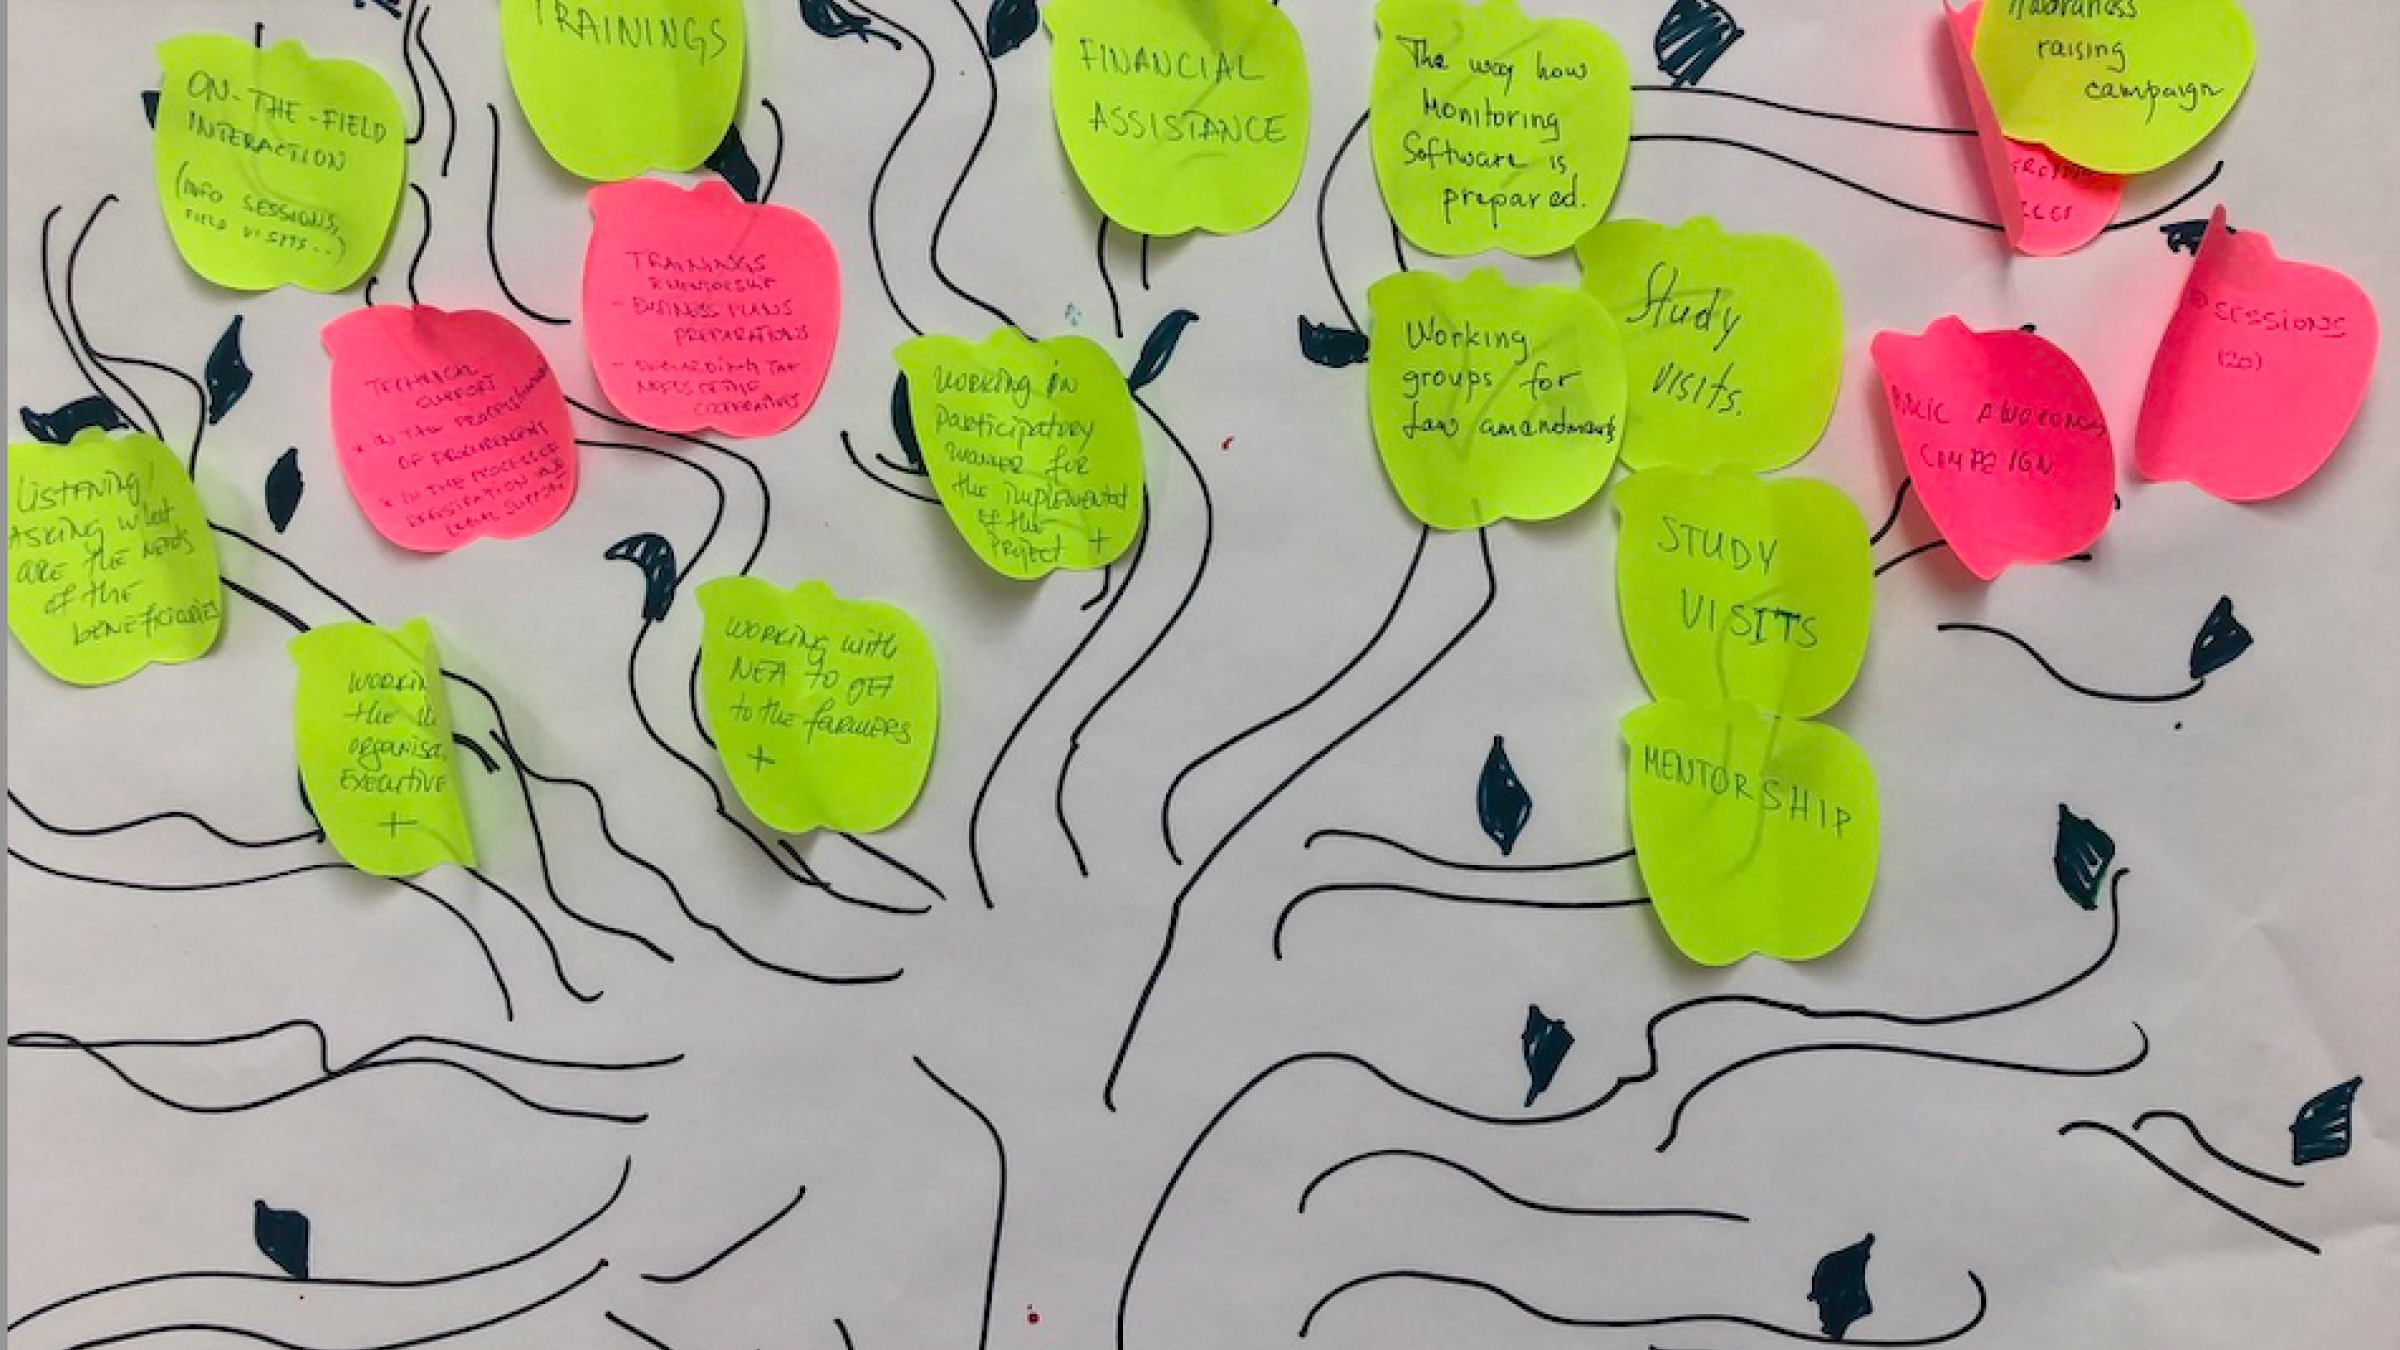 ON-THE-FIELD
INTERACTION
(INFO SESSIONS,
FIELD VISITS...)
TRAININGS
FINANCIAL
ASSISTANCE
The way how
Monitoring
Software is
prepared.
Awareness
raising
campaign
TRAININGS
& MENTORSHIP
- BUSINESS PLANS
PREPARATIONS
- REGARDING THE
NEEDS OF THE
COOPERATIVES
TECHNICAL
SUPPORT
* IN THE PROCESS
OF PROCUREMENT
* IN THE PROCESS OF
LEGAL SUPPORT
Listening/
ASKING what
ARE the NEEDS
of the
beneficiaries
Working in
participatory
manner for
the implementat
of the
project +
Working
groups for
Law amandmants
Study
visits.
SESSIONS
(20)
AWARENESS
CAMPAIGN
STUDY
VISITS
WORKING with
NEA to get
to the farmers
+
WORKIN
the
organisa
EXECUTIVE
+
MENTORSHIP